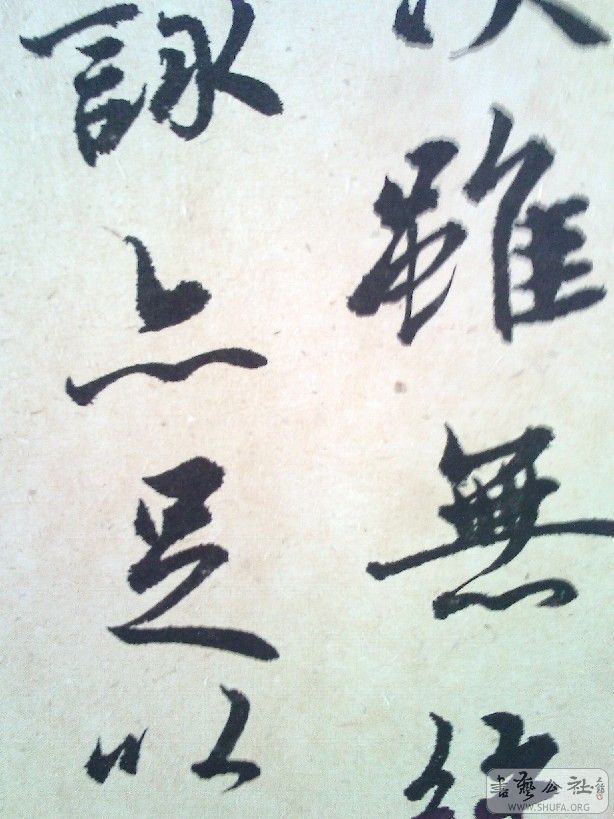 雖無
詠亦足以
書藝公社
WWW.SHUFA.ORG